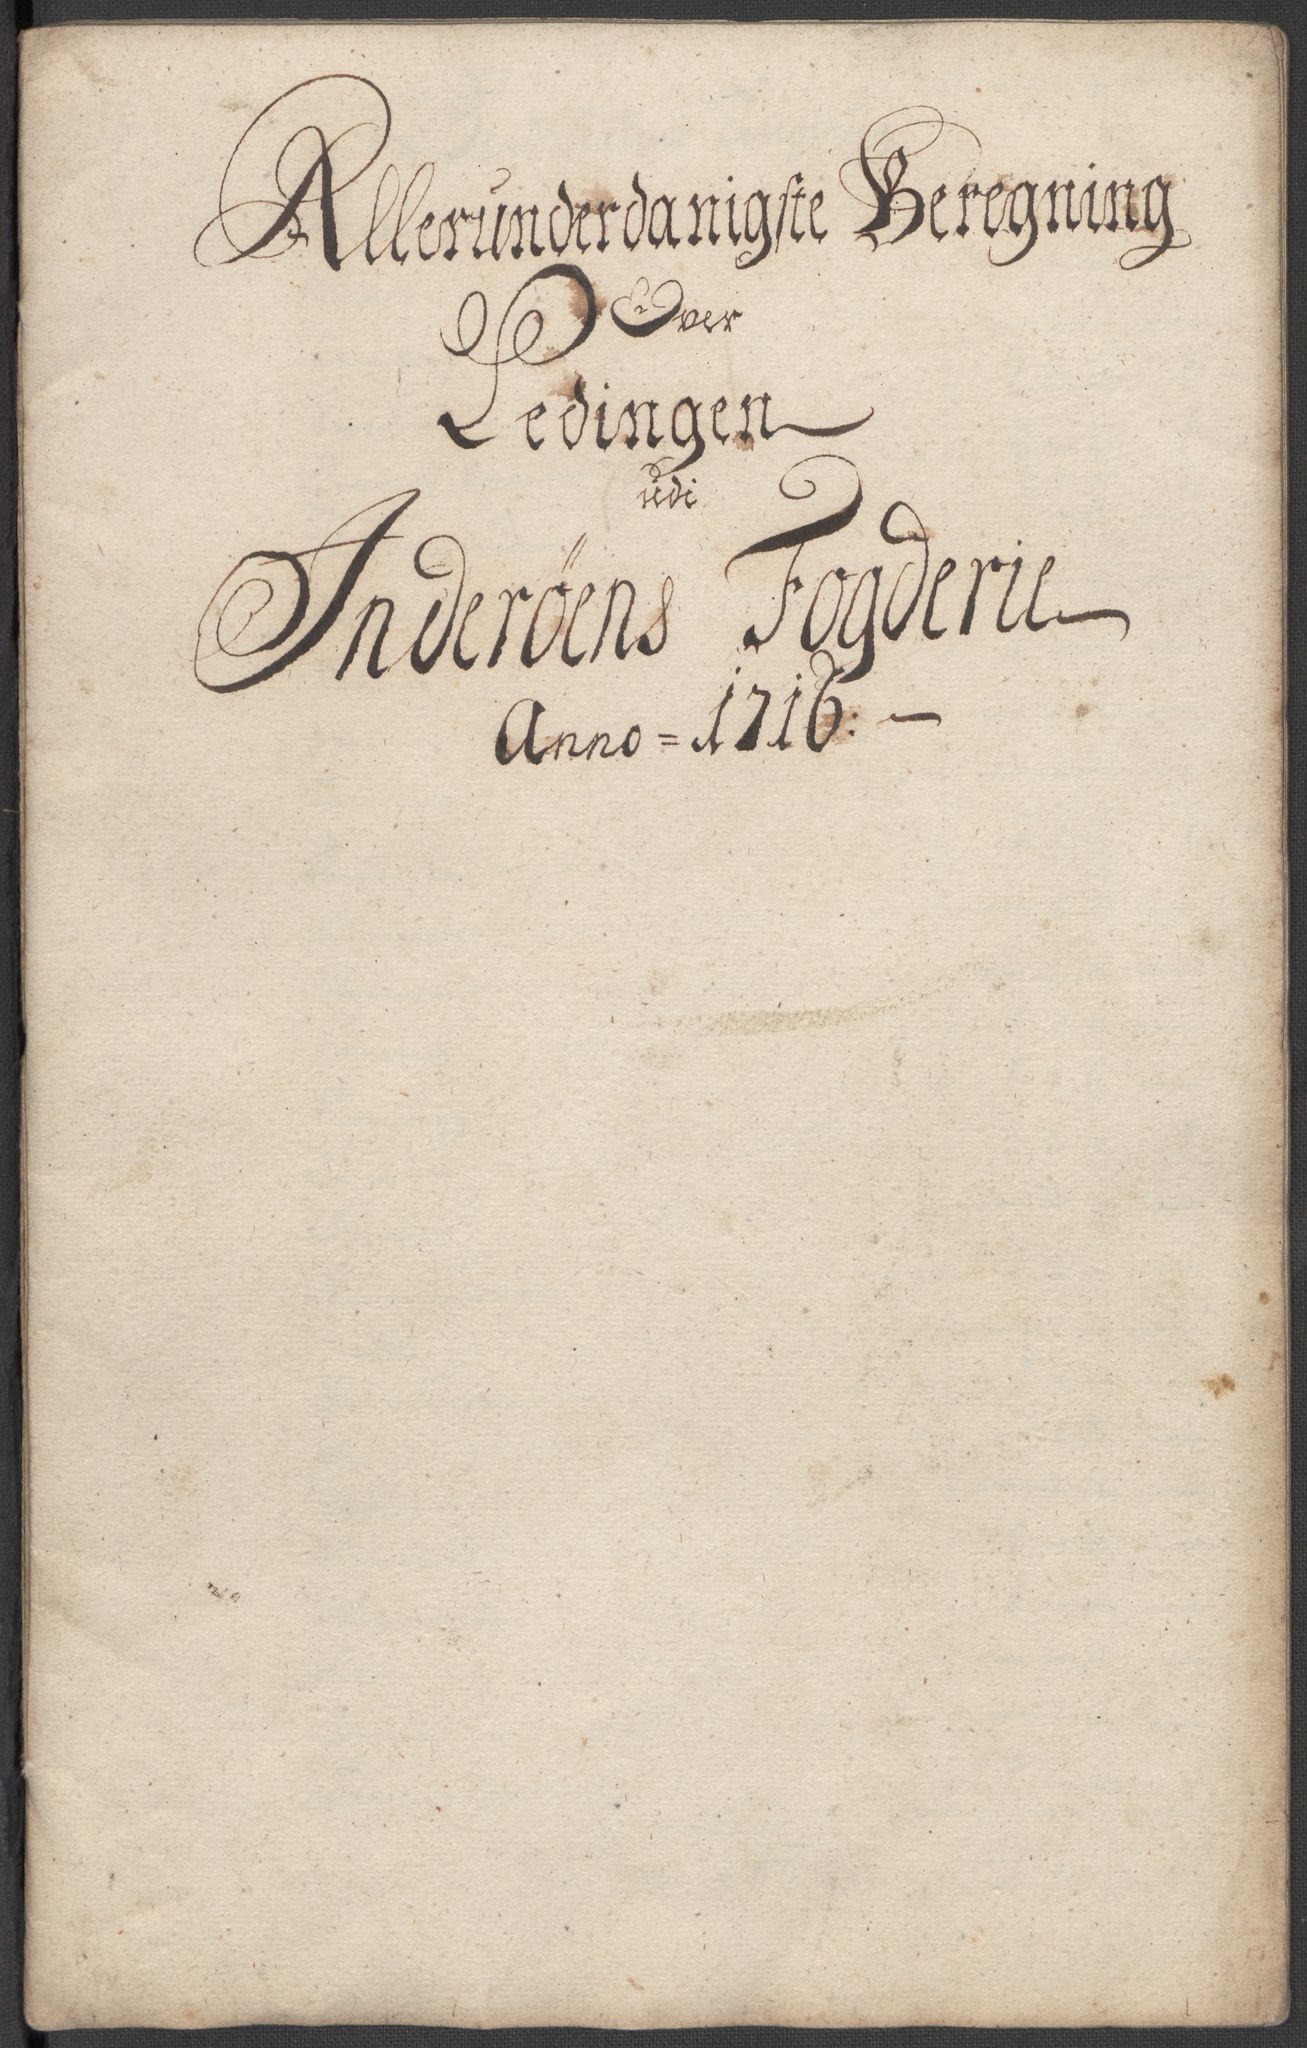 Allerunderdanigste Beregning
Over
Ledingen
udi
Inderöens Fogderie
Anno = 1716: —